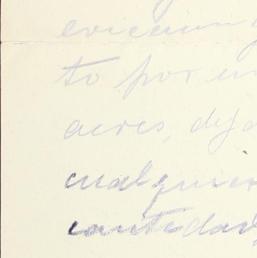 eviccion
to por un
acres, dej
cualquier
cantidad